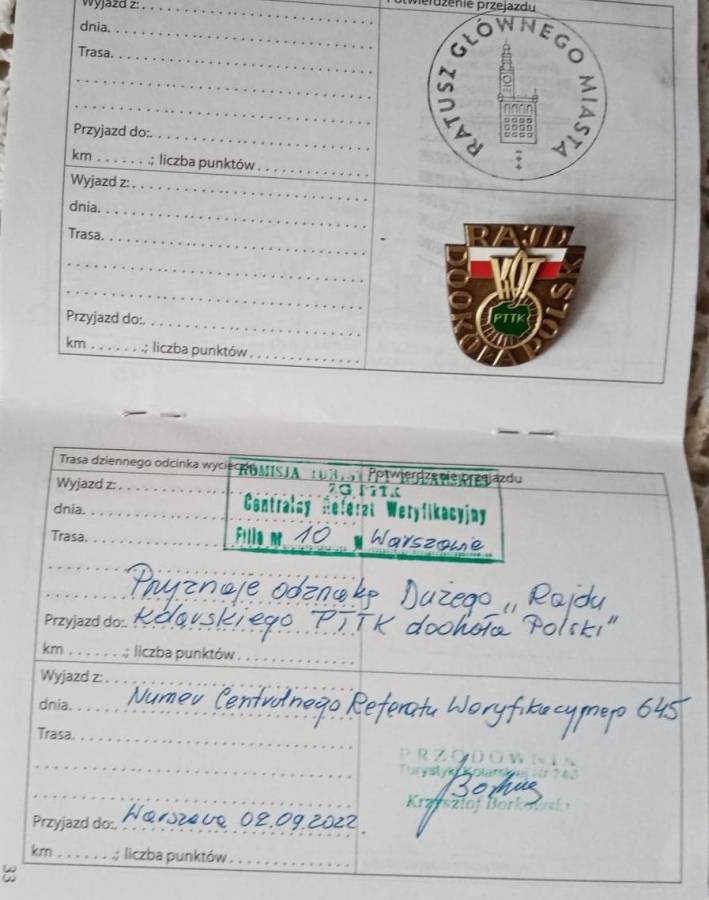 Wyjazd z:
dnia.
Trasa.
Przyjazd do:.
km . . . . . . .; liczba punktów
przejazdu
RATUSZ GŁÓWNEGO MIASTA
Wyjazd z:
dnia.
Trasa.
Przyjazd do:.
km . . . . . . .; liczba punktów
RAJD DOOKOŁA POLSKI
KOT
PTTK
Trasa dziennego odcinka wycieczki
Potwierdzenie przejazdu
KOMISJA
ZG PTTK
Centralny Referat Weryfikacyjny
Filia Nr 10 w Warszawie
Wyjazd z:
dnia.
Trasa.
Przyznaję odznakę Dużego „Rajdu
Przyjazd do:. Kolarskiego PTTK dookoła Polski"
km . . . . . . .; liczba punktów
Wyjazd z:
dnia. Numer Centralnego Referatu Weryfikacyjnego 645
Trasa.
PRZODOWNIK
Turystyki Kolarskiej Nr
Krzysztof Borkowski
Przyjazd do:. Warszawa 02.09.2022
km . . . . . . .; liczba punktów
33